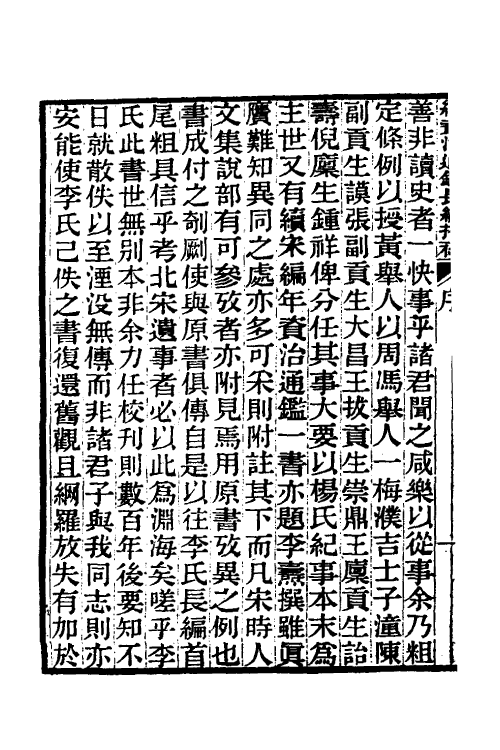 善非讀史者一快事乎諸君聞之咸樂以從事余乃粗
定條例以授黃舉人以周馮舉人一梅濮吉士子潼陳
副貢生謨張副貢生大昌王拔貢生崇鼎王廩貢生詒
壽倪廩生鍾祥俾分任其事大要以楊氏紀事本末為
主世又有續宋編年資治通鑑一書亦題李燾撰雖眞
贗難知異同之處亦多可采則附註其下而凡宋時人
文集說部有可參攷者亦附見焉用原書攷異之例也
書成付之剞劂使與原書俱傳自是以往李氏長編首
尾粗具信乎考北宋遺事者必以此爲淵海矣嗟乎李
氏此書世無別本非余力任校刊則數百年後要知不
日就散佚以至湮没無傳而非諸君子與我同志則亦
安能使李氏已佚之書復還舊觀且網羅放失有加於
序
一